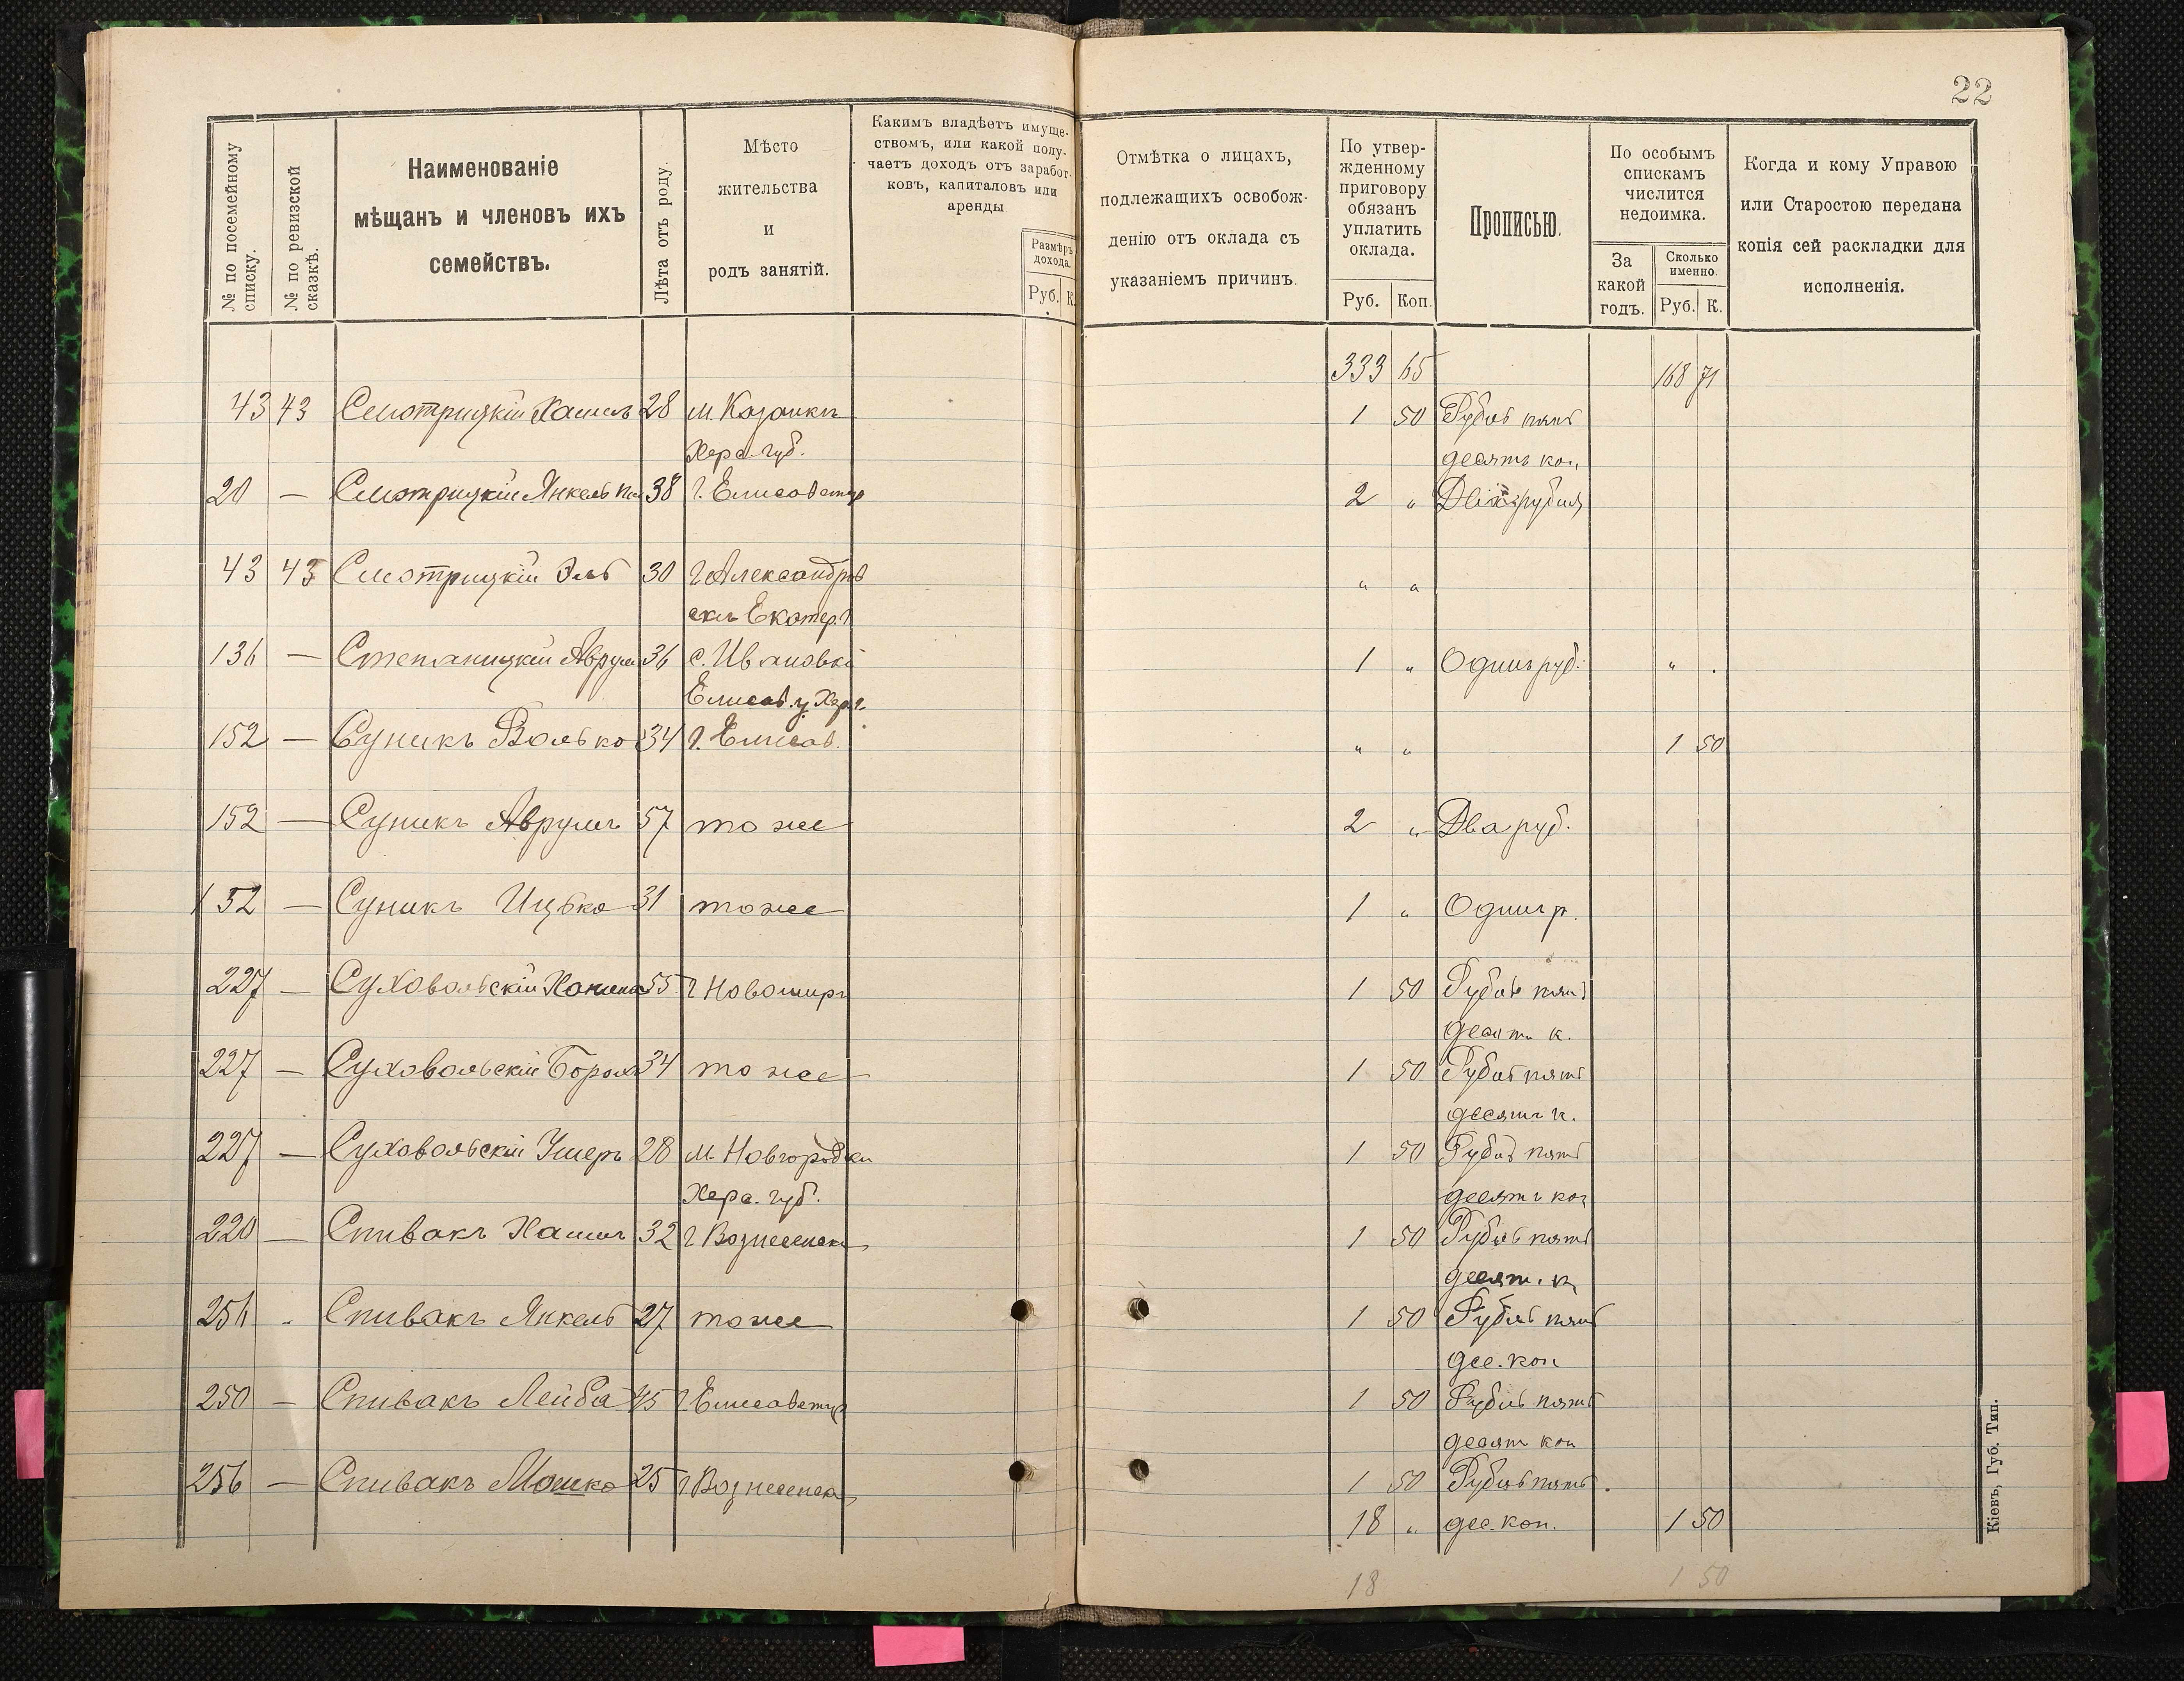 22
№ по посемейному списку.
№ по ревизской сказкѣ.
Наименованіе
мѣщанъ и членовъ ихъ
семействъ.
Лѣта отъ роду.
Мѣсто
жительства
и
родъ занятій.
Какимъ владѣетъ имуще-
ствомъ, или какой полу-
чаетъ доходъ отъ заработ-
ковъ, капиталовъ или
аренды
Размѣръ
дохода.
Руб. К.
Отмѣтка о лицахъ,
подлежащихъ освобож-
денію отъ оклада съ
указаніемъ причинъ.
По утвер-
жденному
приговору
обязанъ
уплатить
оклада.
Руб. Коп.
Прописью.
По особымъ
спискамъ
числится
недоимка.
За
какой
годъ.
Сколько
именно.
Руб. К.
Когда и кому Управою
или Старостою передана
копія сей раскладки для
исполненія.
333 65 168 71
43 43 Смотрицкій Хаимъ 28 м. Казанкъ 1 50 Рубль пять
Херс. губ. десять коп.
20 — Смотрицкій Янкель 38 г. Елисаветгр 2 " Два рубля
43 43 Смотрицкій Эль 30 г. Александров " "
скъ Екатер. г
136 — Степаницкій Аврум 36 с. Ивановки 1 " Одинъ руб. " .
Елисав. у. Хер. г.
152 — Суникъ Волько 34 г. Елисав. " " 1 50
152 — Суникъ Аврумъ 57 тоже 2 " Два руб.
152 — Суникъ Ицько 31 тоже 1 " Одинъ р.
227 — Суховольскій 55 г Новомирг 1 50 Рубль пять
десять к.
227 — Суховольскій Борох 34 тоже 1 50 Рубль пять
десять к.
227 — Суховольскій Ушеръ 28 м. Новгородки 1 50 Рубль пять
Херс. губ. десять коп
220 — Спивакъ Хаимъ 32 г Вознесенск 1 50 Рубль пять
десят. к
256 - Спивакъ Янкель 27 тоже 1 50 Рубль пять
дес. коп
250 — Спивакъ Лейба 45 г. Елисаветгр 1 50 Рубль пять
десят коп
256 — Спивакъ Мошко 25 г. Вознесенск 1 50 Рубль пять.
18 " дес. коп. 1 50
18 1 50
Кіевъ, Губ. Тип.